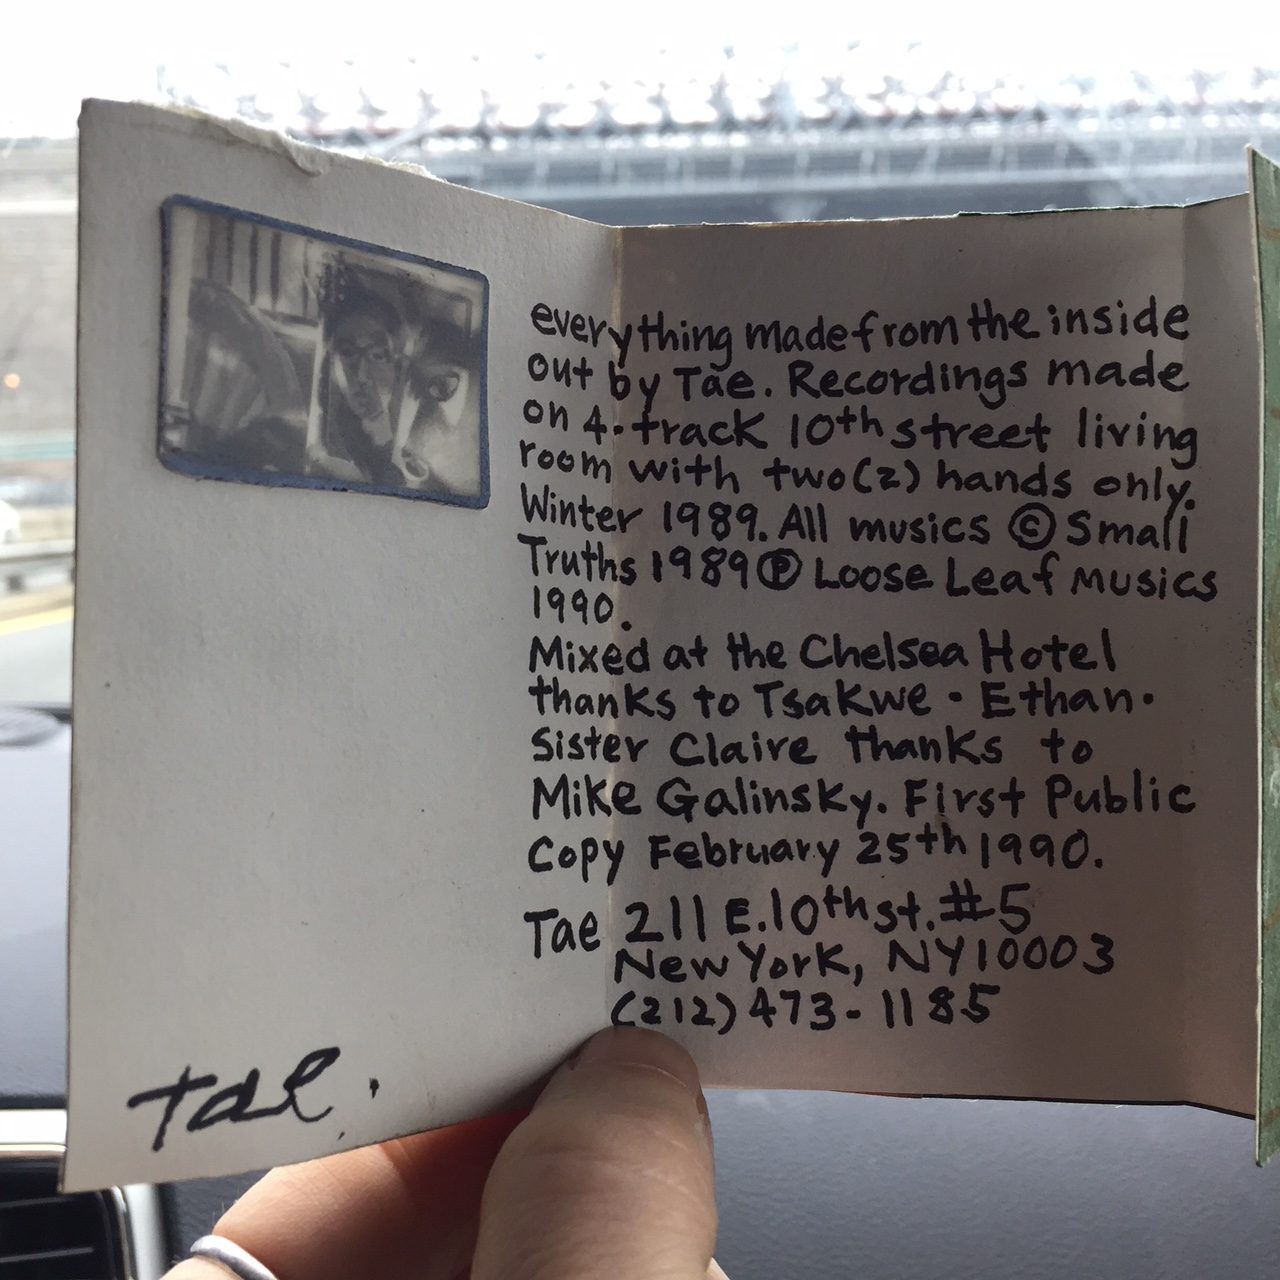 everything made from the inside
out by Tae. Recordings made
on 4-track 10th street living
room with two (2) hands only.
Winter 1989. All musics © Small
Truths 1989 ℗ Loose Leaf Musics
1990.
Mixed at the Chelsea Hotel
thanks to Tsakwe · Ethan ·
Sister Claire thanks to
Mike Galinsky. First Public
Copy February 25th 1990.
Tae 211 E. 10th st. #5
New York, NY 10003
(212) 473-1185
tae.